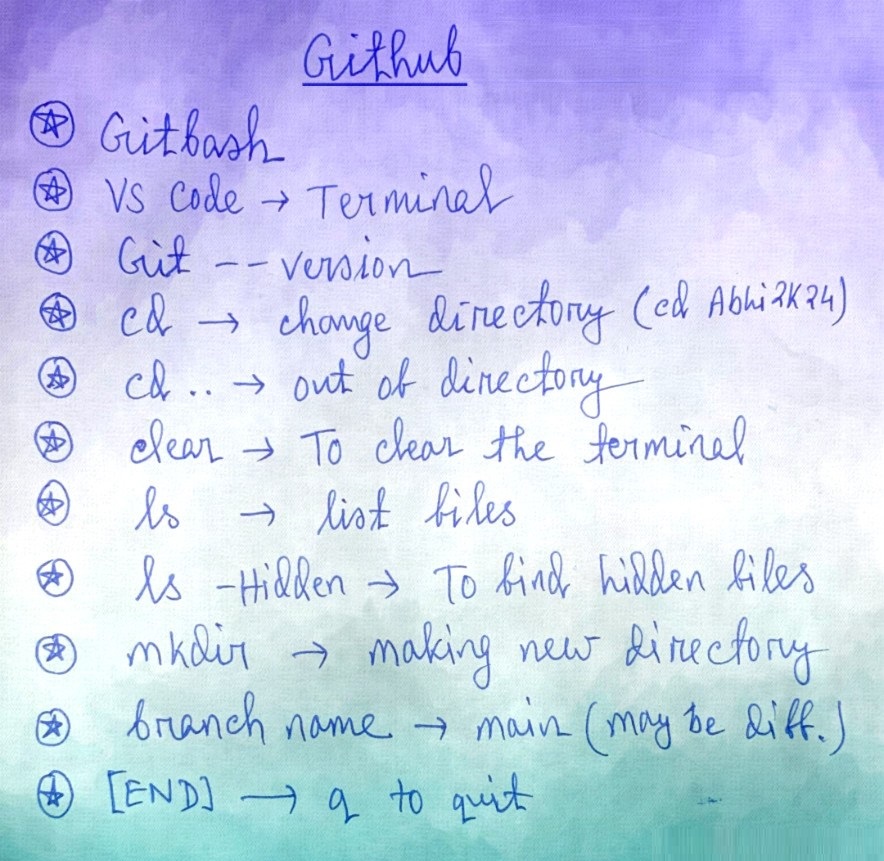 Github
Gitbash
VS Code → Terminal
Git -- version
cd → change directory (cd Abhi2K24)
cd .. → out of directory
clear → To clear the terminal
ls → list files
ls -Hidden → To find hidden files
mkdir → making new directory
branch name → main (may be diff.)
[END] → q to quit